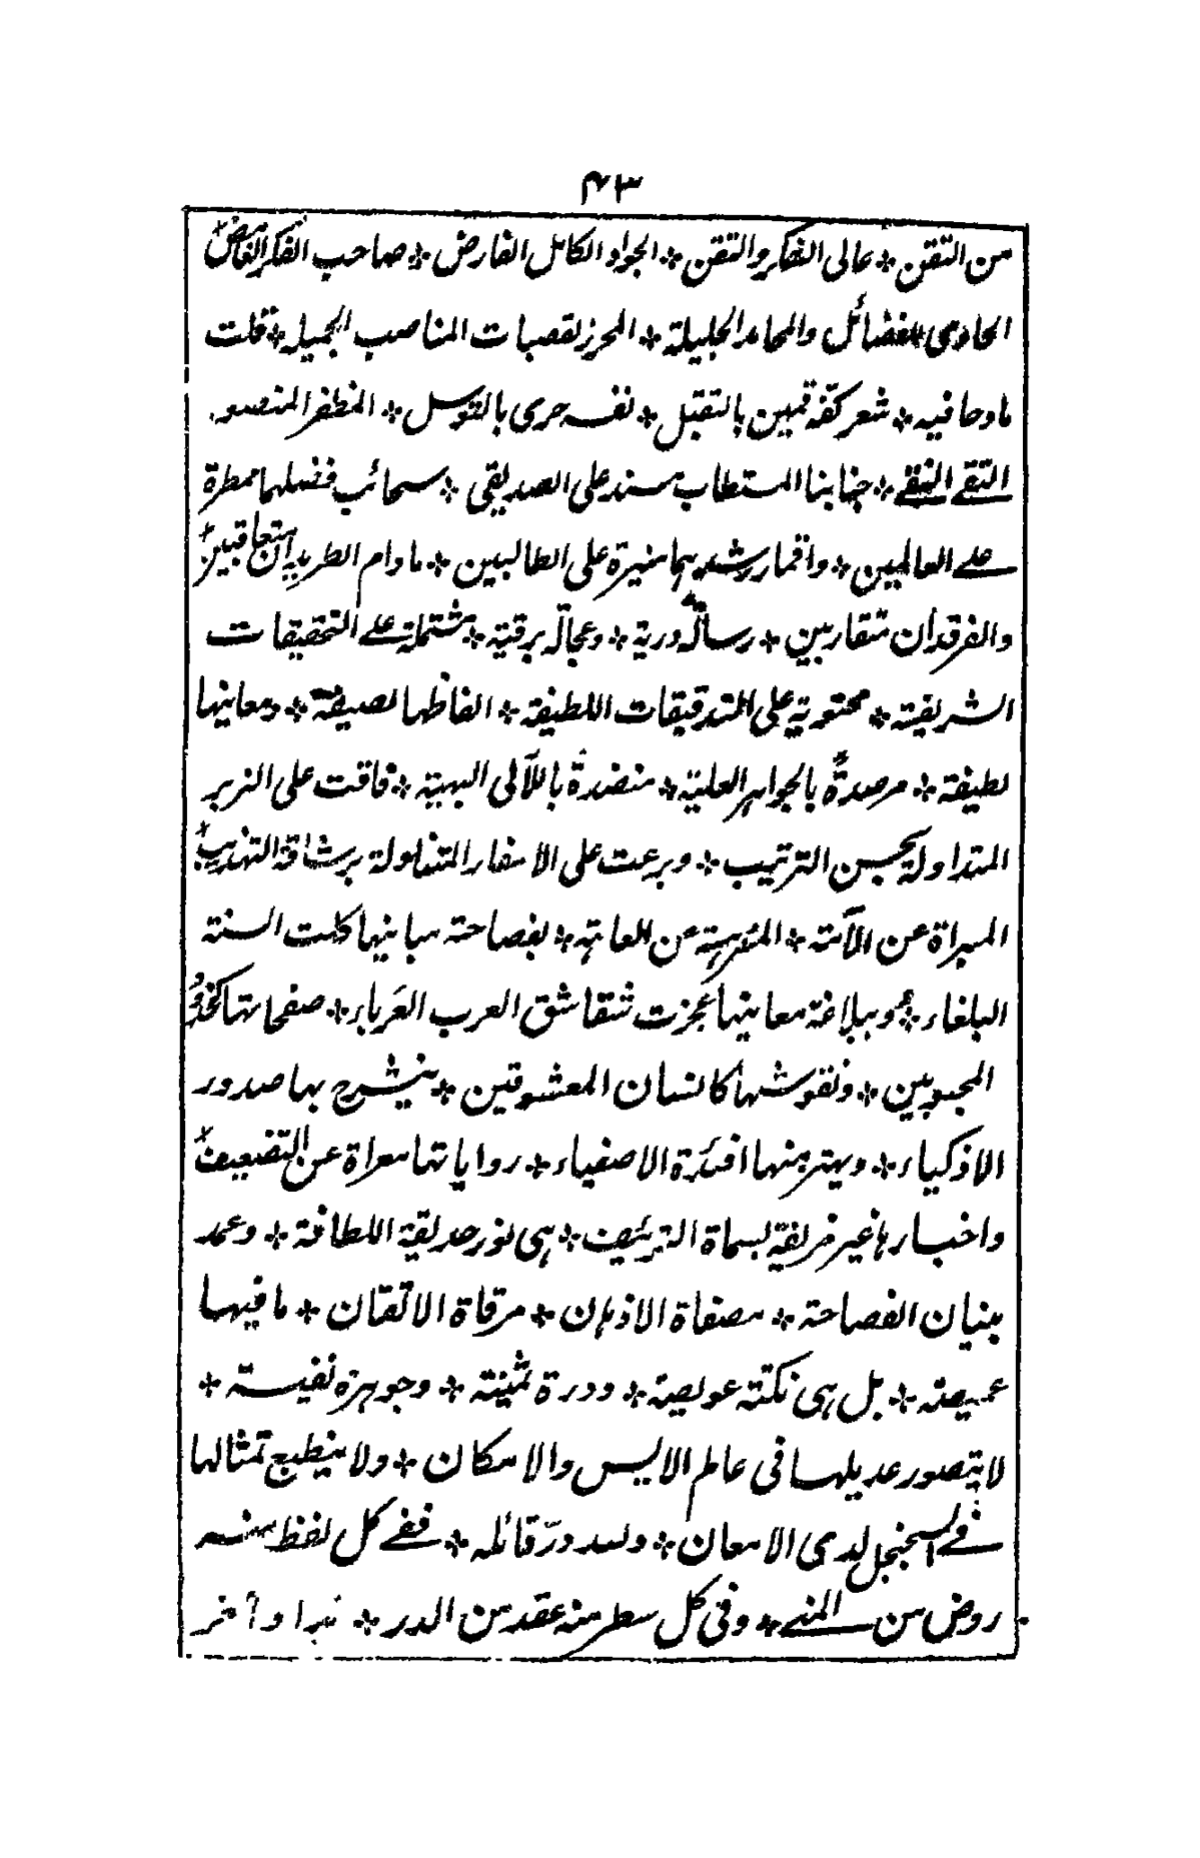 ۴۳
من التقن * عالى التفكر والتقن * الجواد الكامل الفارض * صاحب الفكر الغامض *
الحاوى للفضائل والمحامد الجليلة * المحرز لقصبات المناصب الجميله * قلت
مادحا فيه * شعر كفه قمين بالتقبل * نفسه حرى بالتوسل * المظفر المنصور
التقے النقے * جنابنا المستطاب مسند على الصديقى * سحائب فضلهما ممطرة
علے العالمين * واقمار رشدهما منيرة على الطالبين * مادام الطريدان متعاقبين *
والفرقدان متقاربين * رسالة درية * وعجالة برقية * مشتملة علے التحقيقات
الشريفة * محتوية على التدقيقات اللطيفة * الفاظها نصيفة * ومعانيها
لطيفة * مرصدة بالجواهر العلية * منضدة باللآلى البهية * فاقت على الزبر
المتداولة بحسن الترتيب * وبرعت على الاسفار المتناولة برشاقة التهذيب *
المبراة عن الآمة * المنزهة عن العاهة * بفصاحة مبانيها كلت السنة
البلغاء * وببلاغة معانيها عجزت شقاشق العرب العَرباء * صفحاتها كخدود
المحبوبين * ونقوشها كانسان المعشوقين * ينشرح بها صدور
الاذكياء * ويهتز منها افئدة الاصفياء * رواياتها معراة عن التضعيف *
واخبارها غير مزيفة بسماة التزئيف * هى نور حديقة اللطافة * وعمد
بنيان الفصاحة * مصفاة الاذهان * مرقاة الاتقان * ما فيها
عميصة * بل هى نكتة عويصة * ودرة ثمينة * وجوهرة نفيسة *
لا يتصور عديلها فى عالم الايس والامكان * ولا ينطبع تمثالها
فے السجنجل لدى الامعان * ولله در قائله * ففے كل لفظ منه
روض من المنے * وفى كل سطر منه عقد من الدرر * هذا وآخر